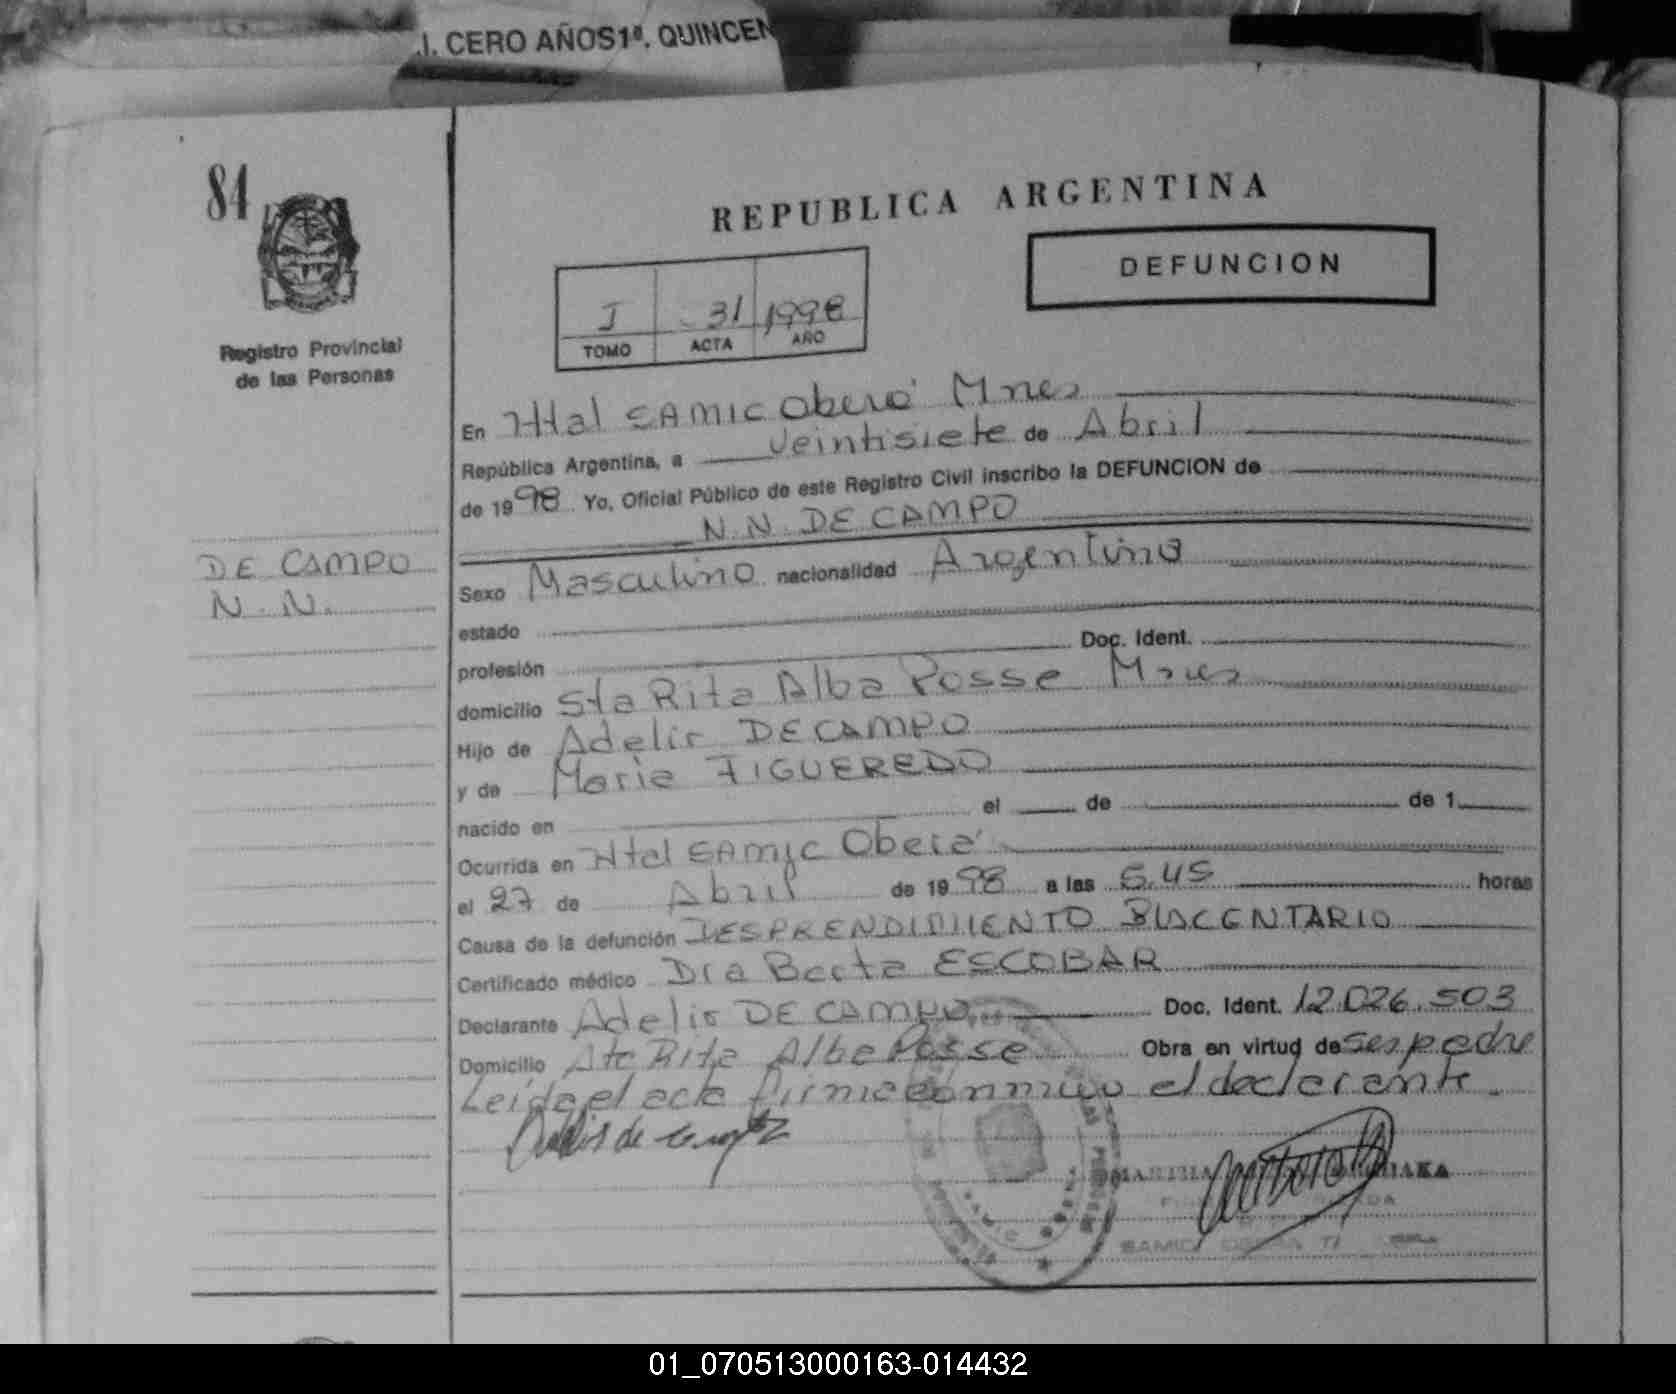 .I. CERO AÑOS 1ª. QUINCEN
84
REPUBLICA ARGENTINA
DEFUNCION
I 31 1998
TOMO ACTA AÑO
Registro Provincial
de las Personas
En Htal SAMIC Oberá Mnes
República Argentina, a veintisiete de Abril
de 1998 Yo, Oficial Público de este Registro Civil inscribo la DEFUNCION de
N.N. DE CAMPO
DE CAMPO
N. N.
Sexo Masculino nacionalidad Argentino
estado
profesión Doc. Ident.
domicilio Sta Rita Alba Posse Mnes
Hijo de Adelir DE CAMPO
y de Maria FIGUEREDO
nacido en el de de 1
Ocurrida en Htal SAMIC Oberá
el 27 de Abril de 1998 a las 6.45 horas
Causa de la defunción DESPRENDIMIENTO PLACENTARIO
Certificado médico Dra Berta ESCOBAR
Declarante Adelir DE CAMPO Doc. Ident. 12.026.503
Domicilio Sta Rita Alba Posse Obra en virtud de ser padre
Leída el acta firma conmigo el declarante
MARTHA
SAMIC
01_070513000163-014432